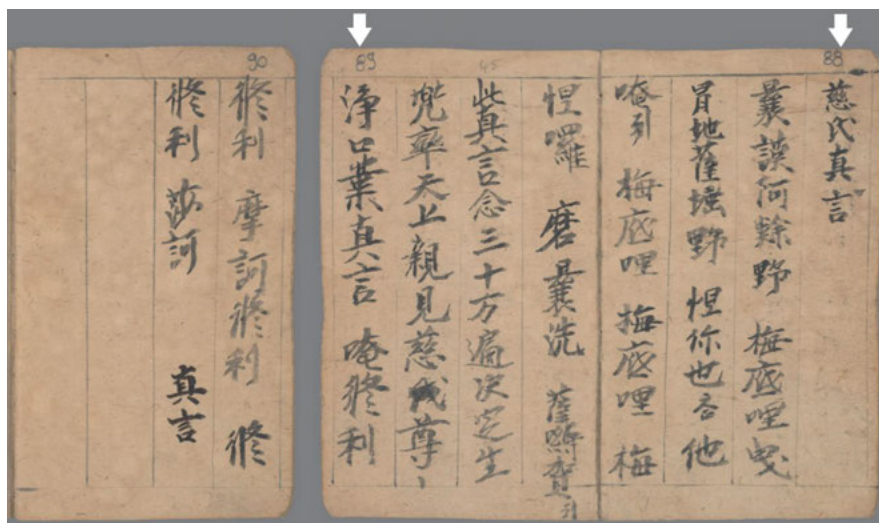 88
慈氏真言
曩謨阿𮢶野 梅底哩曳
冐地薩埵野 怛你也他
唵引 梅底哩 梅底哩 梅
怛囉 磨曩洗 薩嚩賀引
45
此真言念三十万遍决定生
兜率天上親見慈氏尊
89
淨口業真言 唵修利
90
修利 摩訶修利 修
修利 莎訶 真言